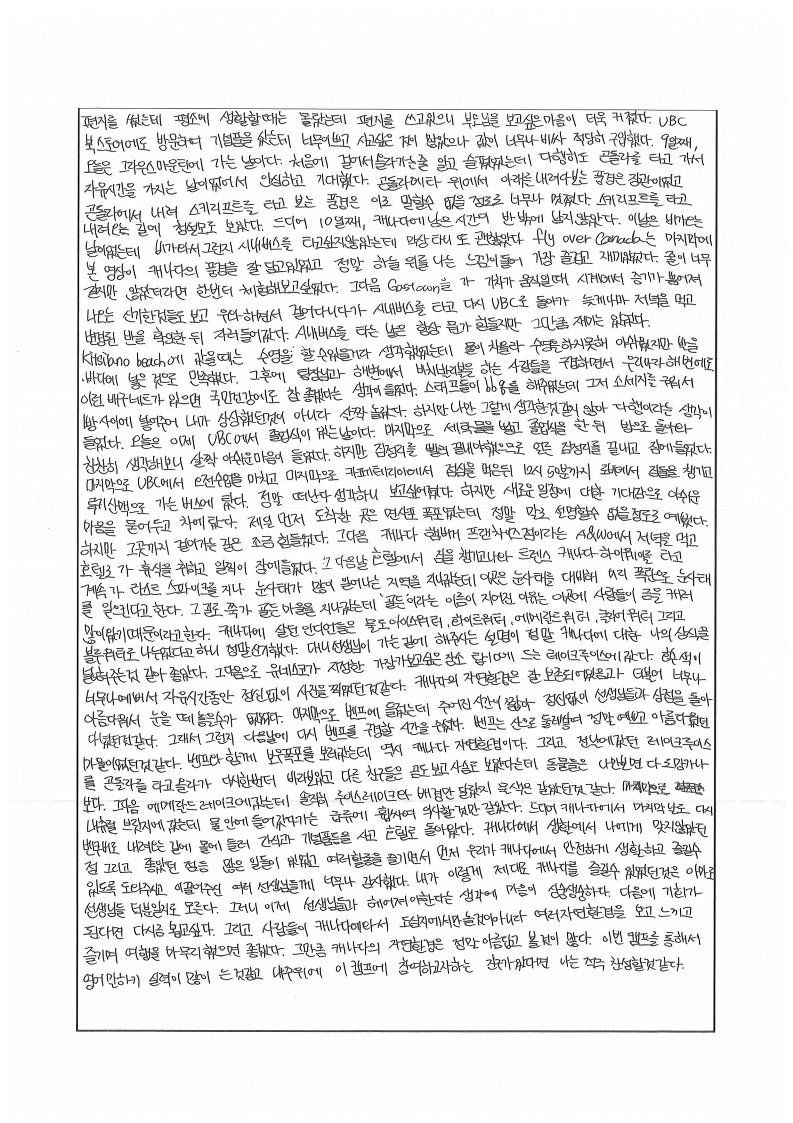 편지를 썼는데 평소에 생활할때는 몰랐는데 편지를 쓰고있으니 부모님을 보고싶은마음이 더욱 커졌다. UBC
북스토어에도 방문하여 기념품을 샀는데 너무이쁘고 사고싶은 것이 많았으나 값이 너무나 비싸 적당히 구입했다. 9일째,
오늘은 그라우스마운틴에 가는 날이다. 처음에 걸어서올라가는줄 알고 슬펐었는데 다행히도 곤돌라를 타고 가서
자유시간을 가지는 날이었어서 안심하고 기대했다. 곤돌라에타 위에서 아래를내려다보는 풍경은 장관이었고
곤돌라에서 내려 스키리프트를 타고 보는 풍경은 이로 말할수 없을정도로 너무나 멋졌다. 스키리프트를 타고
내려오는 길에 청설모도 보았다. 드디어 10일째, 캐나다에 남은 시간이 반밖에 남지않았다. 이날은 비가오는
날이었는데 비가와서그런지 시내버스를 타고싶지않았는데 막상 타니 또 괜찮았다 fly over Canada는 마지막에
본 영상이 캐나다의 풍경을 잘 담고있었고 정말 하늘 위를 나는 느낌이들어 가장 즐겁고 재미있었다. 줄이 너무
길지만 않았더라면 한번더 체험해보고싶었다. 그다음 Gastown을 가 기차가 움직일때 시계에서 증기가 뿜어져
나오는 신기한것들도 보고 걸어다니다가 시내버스를 타고 다시 UBC로 돌아가 늦게나마 저녁을 먹고
변경된 반을 확인한 뒤 자러들어갔다. 시내버스를 타는 날은 항상 뭔가 힘들지만 그만큼 재미는 있었다.
Kitsilano beach에 갔을때는 수영을 할 수있을거라 생각했었는데 물이 차올라 수영을하지못해 아쉬웠지만 발을
바다에 넣은 것으로 만족했다. 그후에 팀장님과 해변에서 비치발리볼을 하는 사람들을 구경하면서 우리나라 해변에도
이런 배구네트가 있으면 국민건강에도 참 좋겠다는 생각이들었다. 스태프들이 bbq를 해주었는데 그저 소세지를 구워서
빵 사이에 넣어주어 내가 상상했던것이 아니라 살짝 놀랐다. 하지만 나만 그렇게 생각한것같지 않아 다행이라는 생각이
들었다. 오늘은 이제 UBC에서 졸업식이 있는날이다. 마지막으로 세탁물을 받고 졸업식을 한 뒤 방으로 돌아와
찬찬히 생각해보니 살짝 아쉬운마음이 들었다. 하지만 짐정리를 빨리 끝내야했으므로 얼른 짐정리를 끝내고 잠에들었다.
마지막으로 UBC에서 오전수업을 마치고 마지막으로 카페테리아에서 점심을 먹은뒤 12시 50분까지 로비에서 짐들을 챙기고
록키산맥으로 가는 버스에 탔다. 정말 떠난다 생각하니 보고싶어졌다. 하지만 새로운 일정에 대한 기대감으로 아쉬운
마음을 묻어두고 차에 탔다. 제일 먼저 도착한 곳은 면사포 폭포였는데 정말 말로 설명할수 없을정도로 예뻤다.
하지만 그곳까지 걸어가는 길은 조금 힘들었다. 그다음 캐나다 햄버거 프랜차이즈점이라는 A&W에서 저녁을 먹고
호텔로 가 휴식을 취하고 일찍이 잠에들었다. 그 다음날 호텔에서 짐을 챙기고나와 트랜스 캐나다 하이웨이를 타고
계속 가 라스트 스파이크를 지나 눈사태가 많이 일어나는 지역을 지나갔는데 이곳은 눈사태를 대비해 미리 폭탄으로 눈사태
를 일으킨다고 한다. 그 길로 쭉가 골든 마을을 지나갔는데 '골든'이라는 이름이 지어진 이유는 이곳에 사람들이 금을 캐러
많이왔기때문이라고한다. 캐나다에 살던 인디언들은 물도 아이스워터, 화이트워터, 에메랄드워터, 그리고
블루워터로 나누었다고하니 정말신기했다. 대니선생님이 가는길에 해주시는 설명이 정말 캐나다에 대한 나의 상식을
넓혀주는것 같아 좋았다. 그다음으로 유네스코가 지정한 가장가보고싶은 장소 탑10에 드는 레이크루이스에갔다. 호수색이
너무나예뻐서 자유시간동안 정신없이 사진을 찍었던것같다. 캐나다의 자연환경은 잘 보존되어있음과 더불어 너무나
아름다워서 눈을 떼 놓을수가 없었다. 마지막으로 벤프에 들렀는데 주어진 시간이 짧아 정신없이 선생님들과 상점을 돌아
다녔던것같다. 그래서 그런지 다음날에 다시 벤프를 구경할 시간을 주셨다. 벤프는 산으로 둘러쌓여 정말 예쁘고 아름다웠던
마을이었던것같다. 벤프와 함께 보우폭포를 보러갔는데 역시 캐나다 자연환경이다. 그리고 전날에갔던 레이크루이스
를 곤돌라를 타고 올라가 다시한번더 바라보았고 다른 친구들은 곰도 보고 사슴도 보았다는데 동물들은 나만보면 다 도망가나
보다. 그다음 에메랄드 레이크에갔는데 솔직히 루이스레이크와 배경만 달랐지 물색은 같았던것 같다. 마지막으로
내츄럴 브릿지에 갔는데 물 안에 들어갔다가는 급류에 휩싸여 익사할것만 같았다. 드디어 캐나다에서 마지막날로 다시
밴쿠버로 내려오는 길에 몰에 들러 간식과 기념품들을 사고 호텔로 돌아왔다. 캐나다에서 생활에서 나에게 맞지않았던
점 그리고 좋았던 점등 많은 일들이 있었고 여러활동을 즐기면서 먼저 우리가 캐나다에서 안전하게 생활하고 즐길수
있도록 도와주시고 이끌어주신 여러 선생님들께 너무나 감사했다. 내가 이렇게 제대로 캐나다를 즐길수 있었던것은 아마도
선생님들 덕분일지도 모른다. 그러니 이제 선생님들과 헤어져야한다는 생각에 마음이 싱숭생숭하다. 다음에 기회가
된다면 다시금 뵙고싶다. 그리고 사람들이 캐나다에와서 도심지에서만 놀것이아니라 여러자연환경을 보고 느끼고
즐기며 여행을 마무리 했으면 좋겠다. 그만큼 캐나다의 자연환경은 정말 아름답고 볼것이 많다. 이번 캠프를 통해서
영어 말하기 실력이 많이 는 것같고 내주위에 이 캠프에 참여하고자하는 친구가있다면 나는 적극 찬성할것같다.